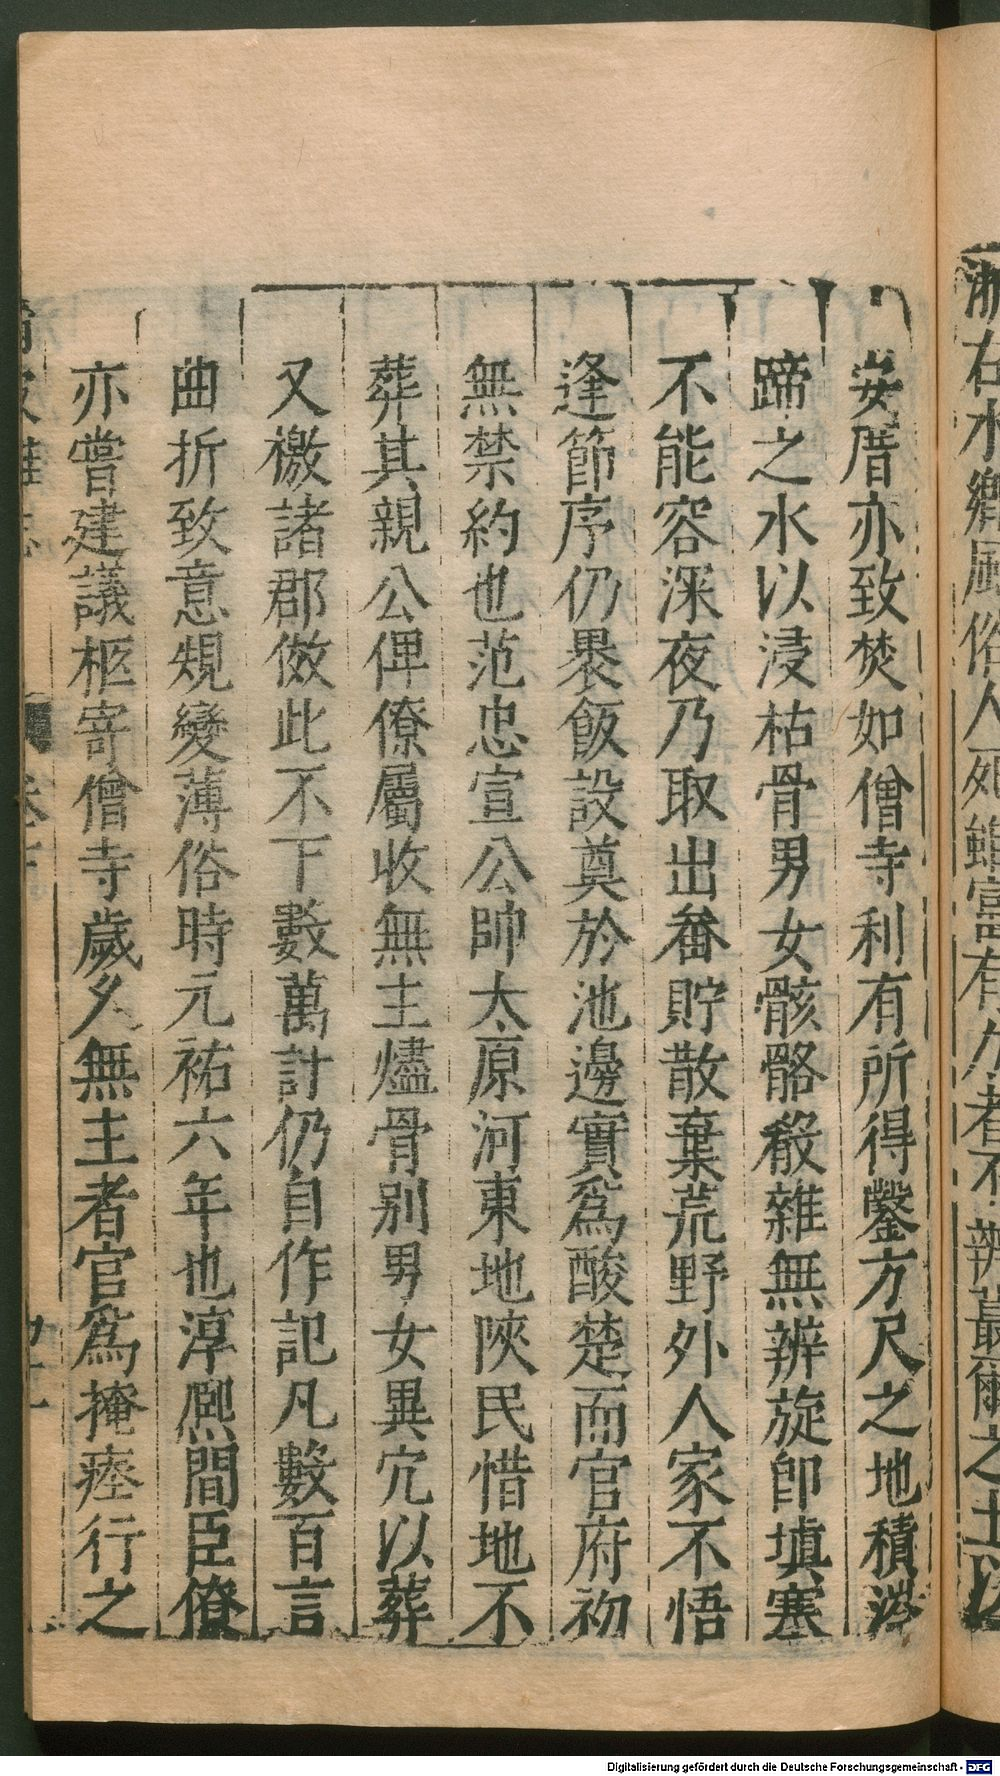 浙右水鄉風俗人死雖富有力者不辨蕞爾之土以
安厝亦致焚如僧寺利有所得鑿方尺之地積涔
蹄之水以浸枯骨男女骸骼殽雜無辨旋卽填塞
不能容深夜乃取出畚貯散棄荒野外人家不悟
逢節序仍褁飯設奠於池邊實爲酸楚而官府初
無禁約也范忠宣公帥太原河東地陝民惜地不
葬其親公俾僚屬收無主燼骨别男女異穴以葬
又檄諸郡倣此不下數萬計仍自作記凡數百言
曲折致意䂓變薄俗時元祐六年也淳熈間臣僚
亦嘗建議柩寄僧寺歲久無主者官爲掩瘞行之
Digitalisierung gefördert durch die Deutsche Forschungsgemeinschaft - DFG